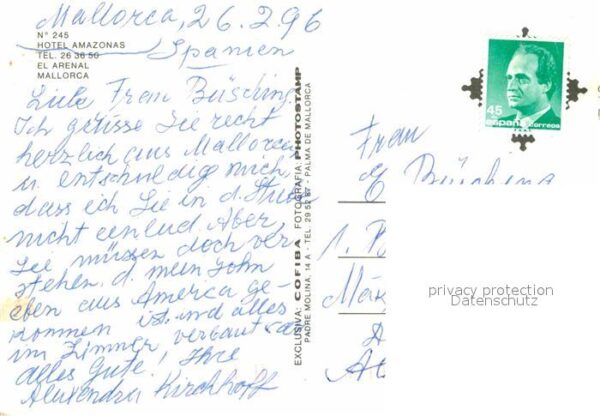 Mallorca, 26.2.96
Spanien
N° 245
HOTEL AMAZONAS
TEL. 26 36 50
EL ARENAL
MALLORCA
Liebe Frau Büsching.
Ich grüsse Sie recht
herzlich aus Mallorca
u. entschuldig mich,
dass ich Sie in d. Stube
nicht einlud. Aber
Sie müssen doch ver
stehen. d. mein Sohn
eben aus America ge-
kommen ist. und alles
im Zimmer verbaut
alles Gute, Ihre
Alexandra Kirchhoff
EXCLUSIVA: COFIBA FOTOGRAFIA: PHOTOSTAMP
PADRE MOLINA, 14 A - TEL. 29 52 67 - PALMA DE MALLORCA
45
españa correos
Frau
E. Büsching
1.
privacy protection
Datenschutz